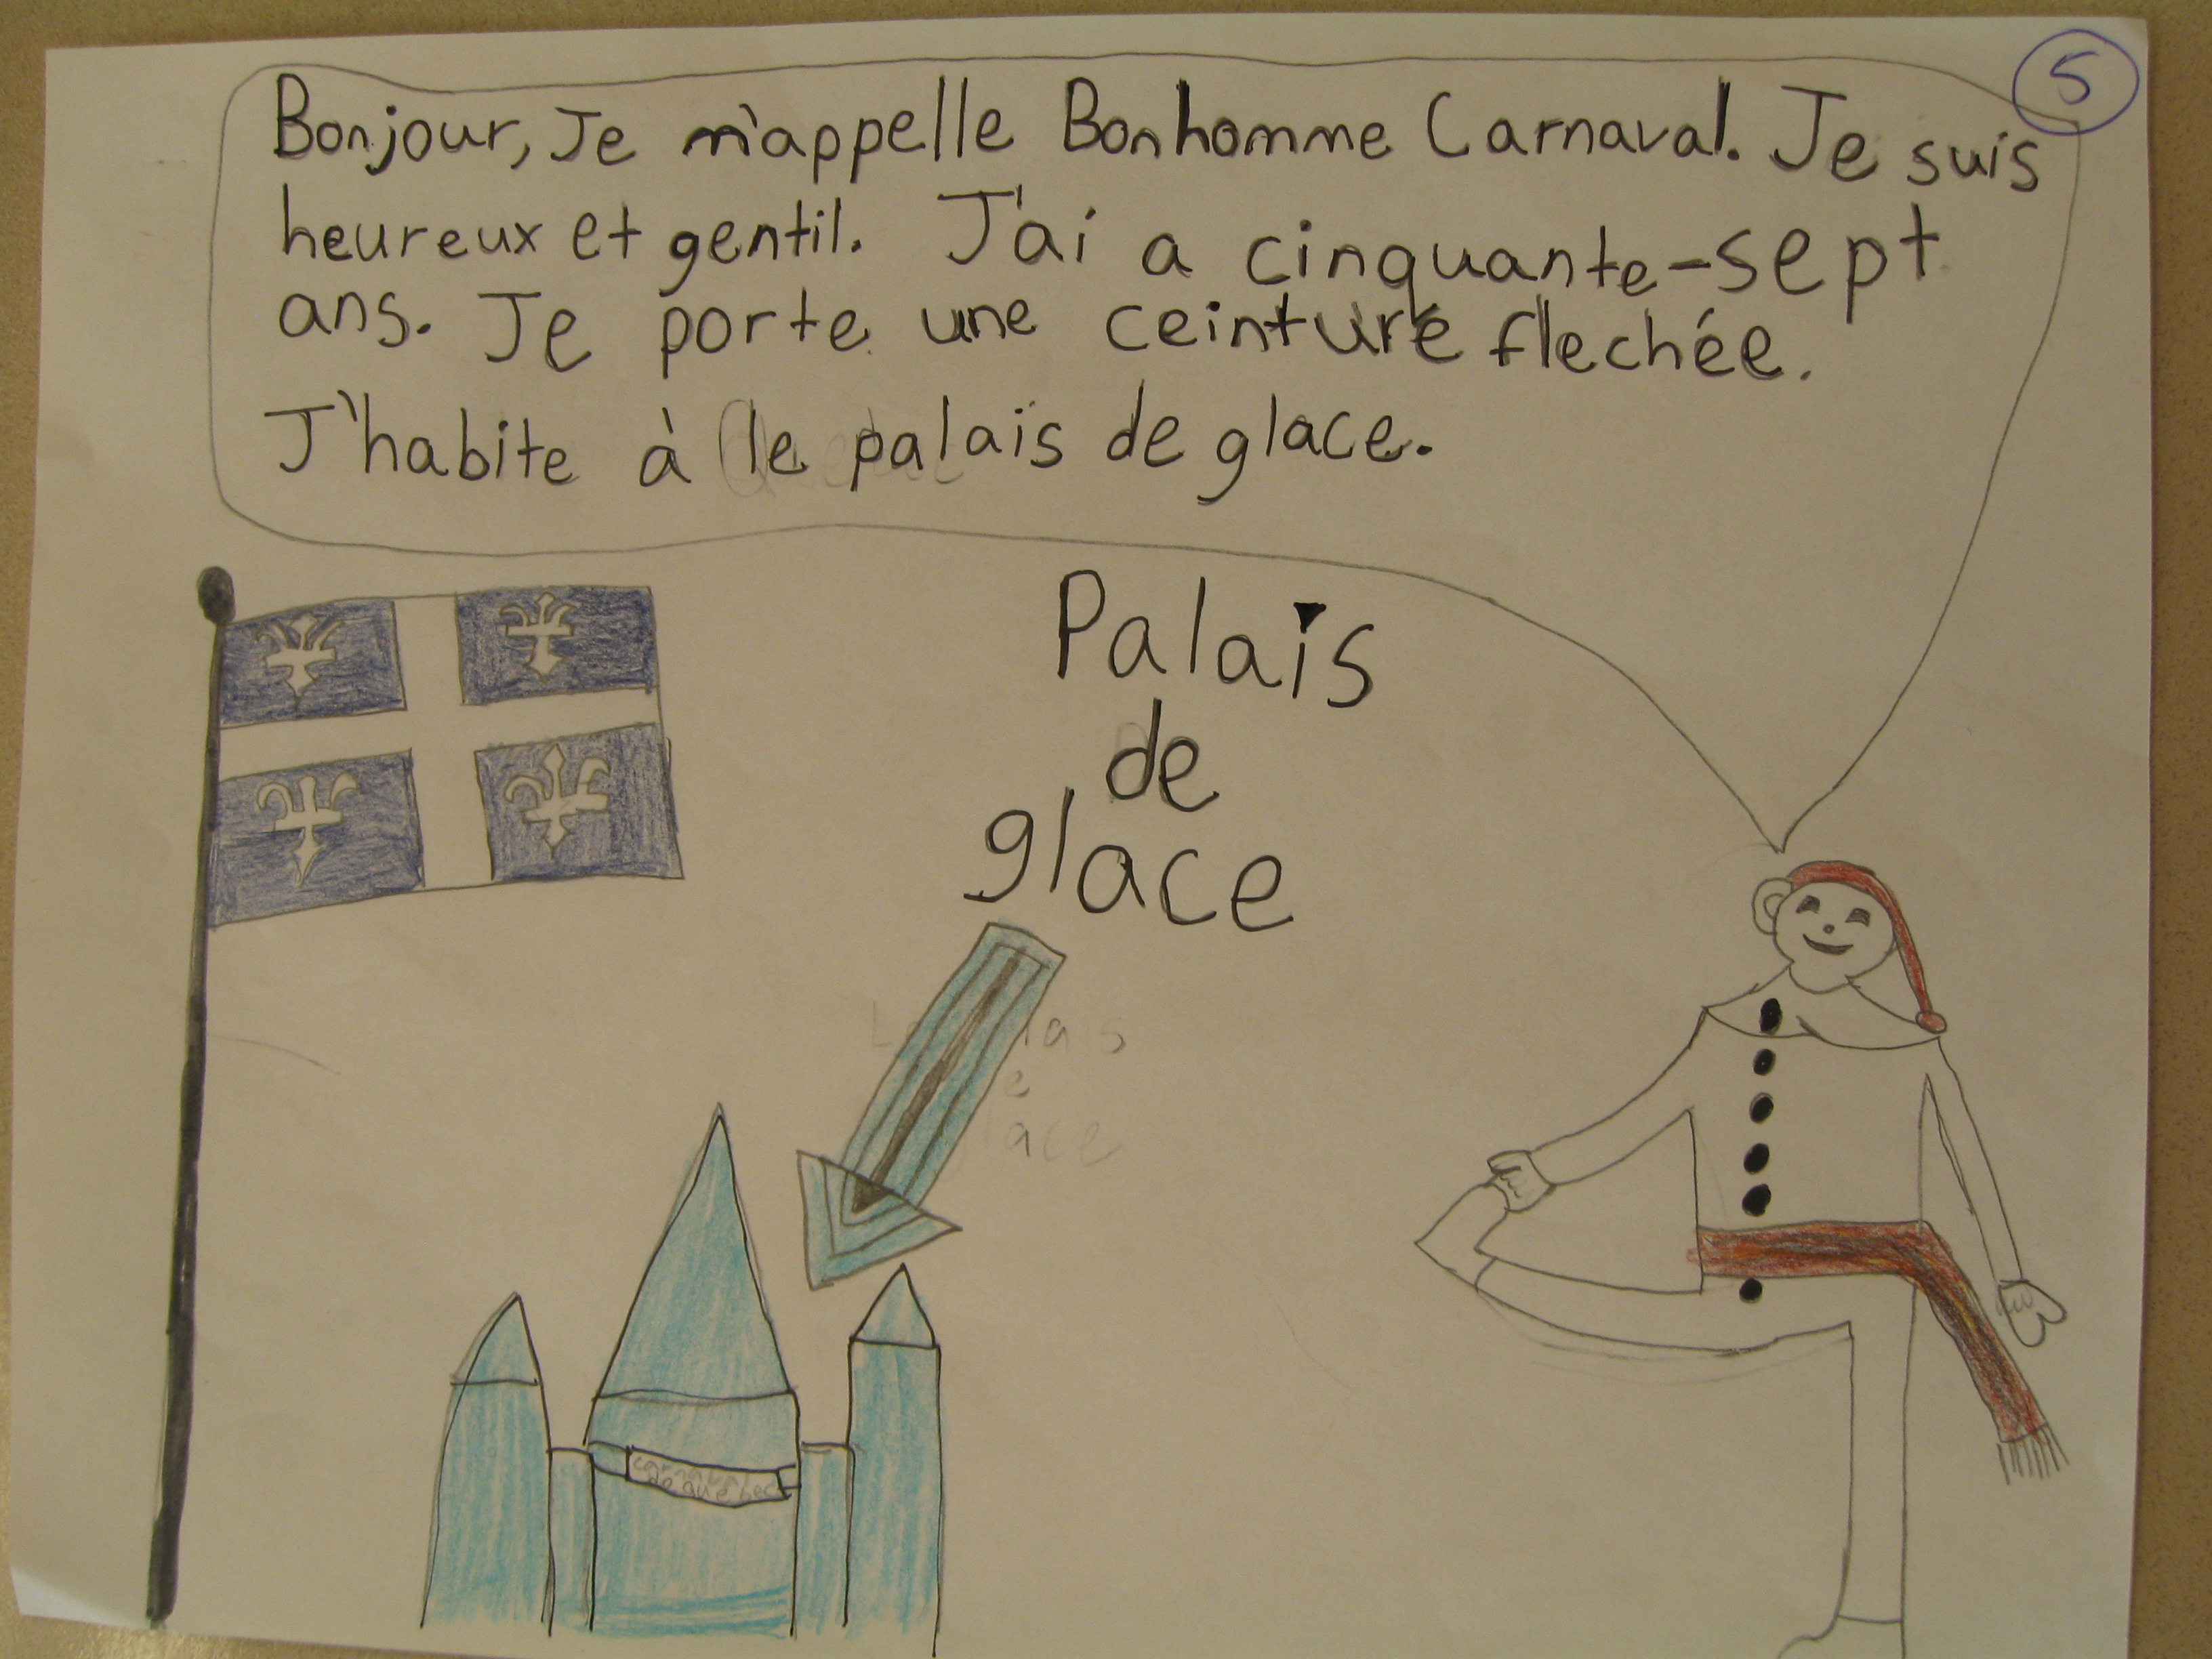 5
Bonjour, Je m'appelle Bonhomme Carnaval. Je suis
heureux et gentil. J'ai a cinquante-sept
ans. Je porte une ceinture flechée.
J'habite à le palais de glace.
Palais
de
glace
carnaval
de quebec